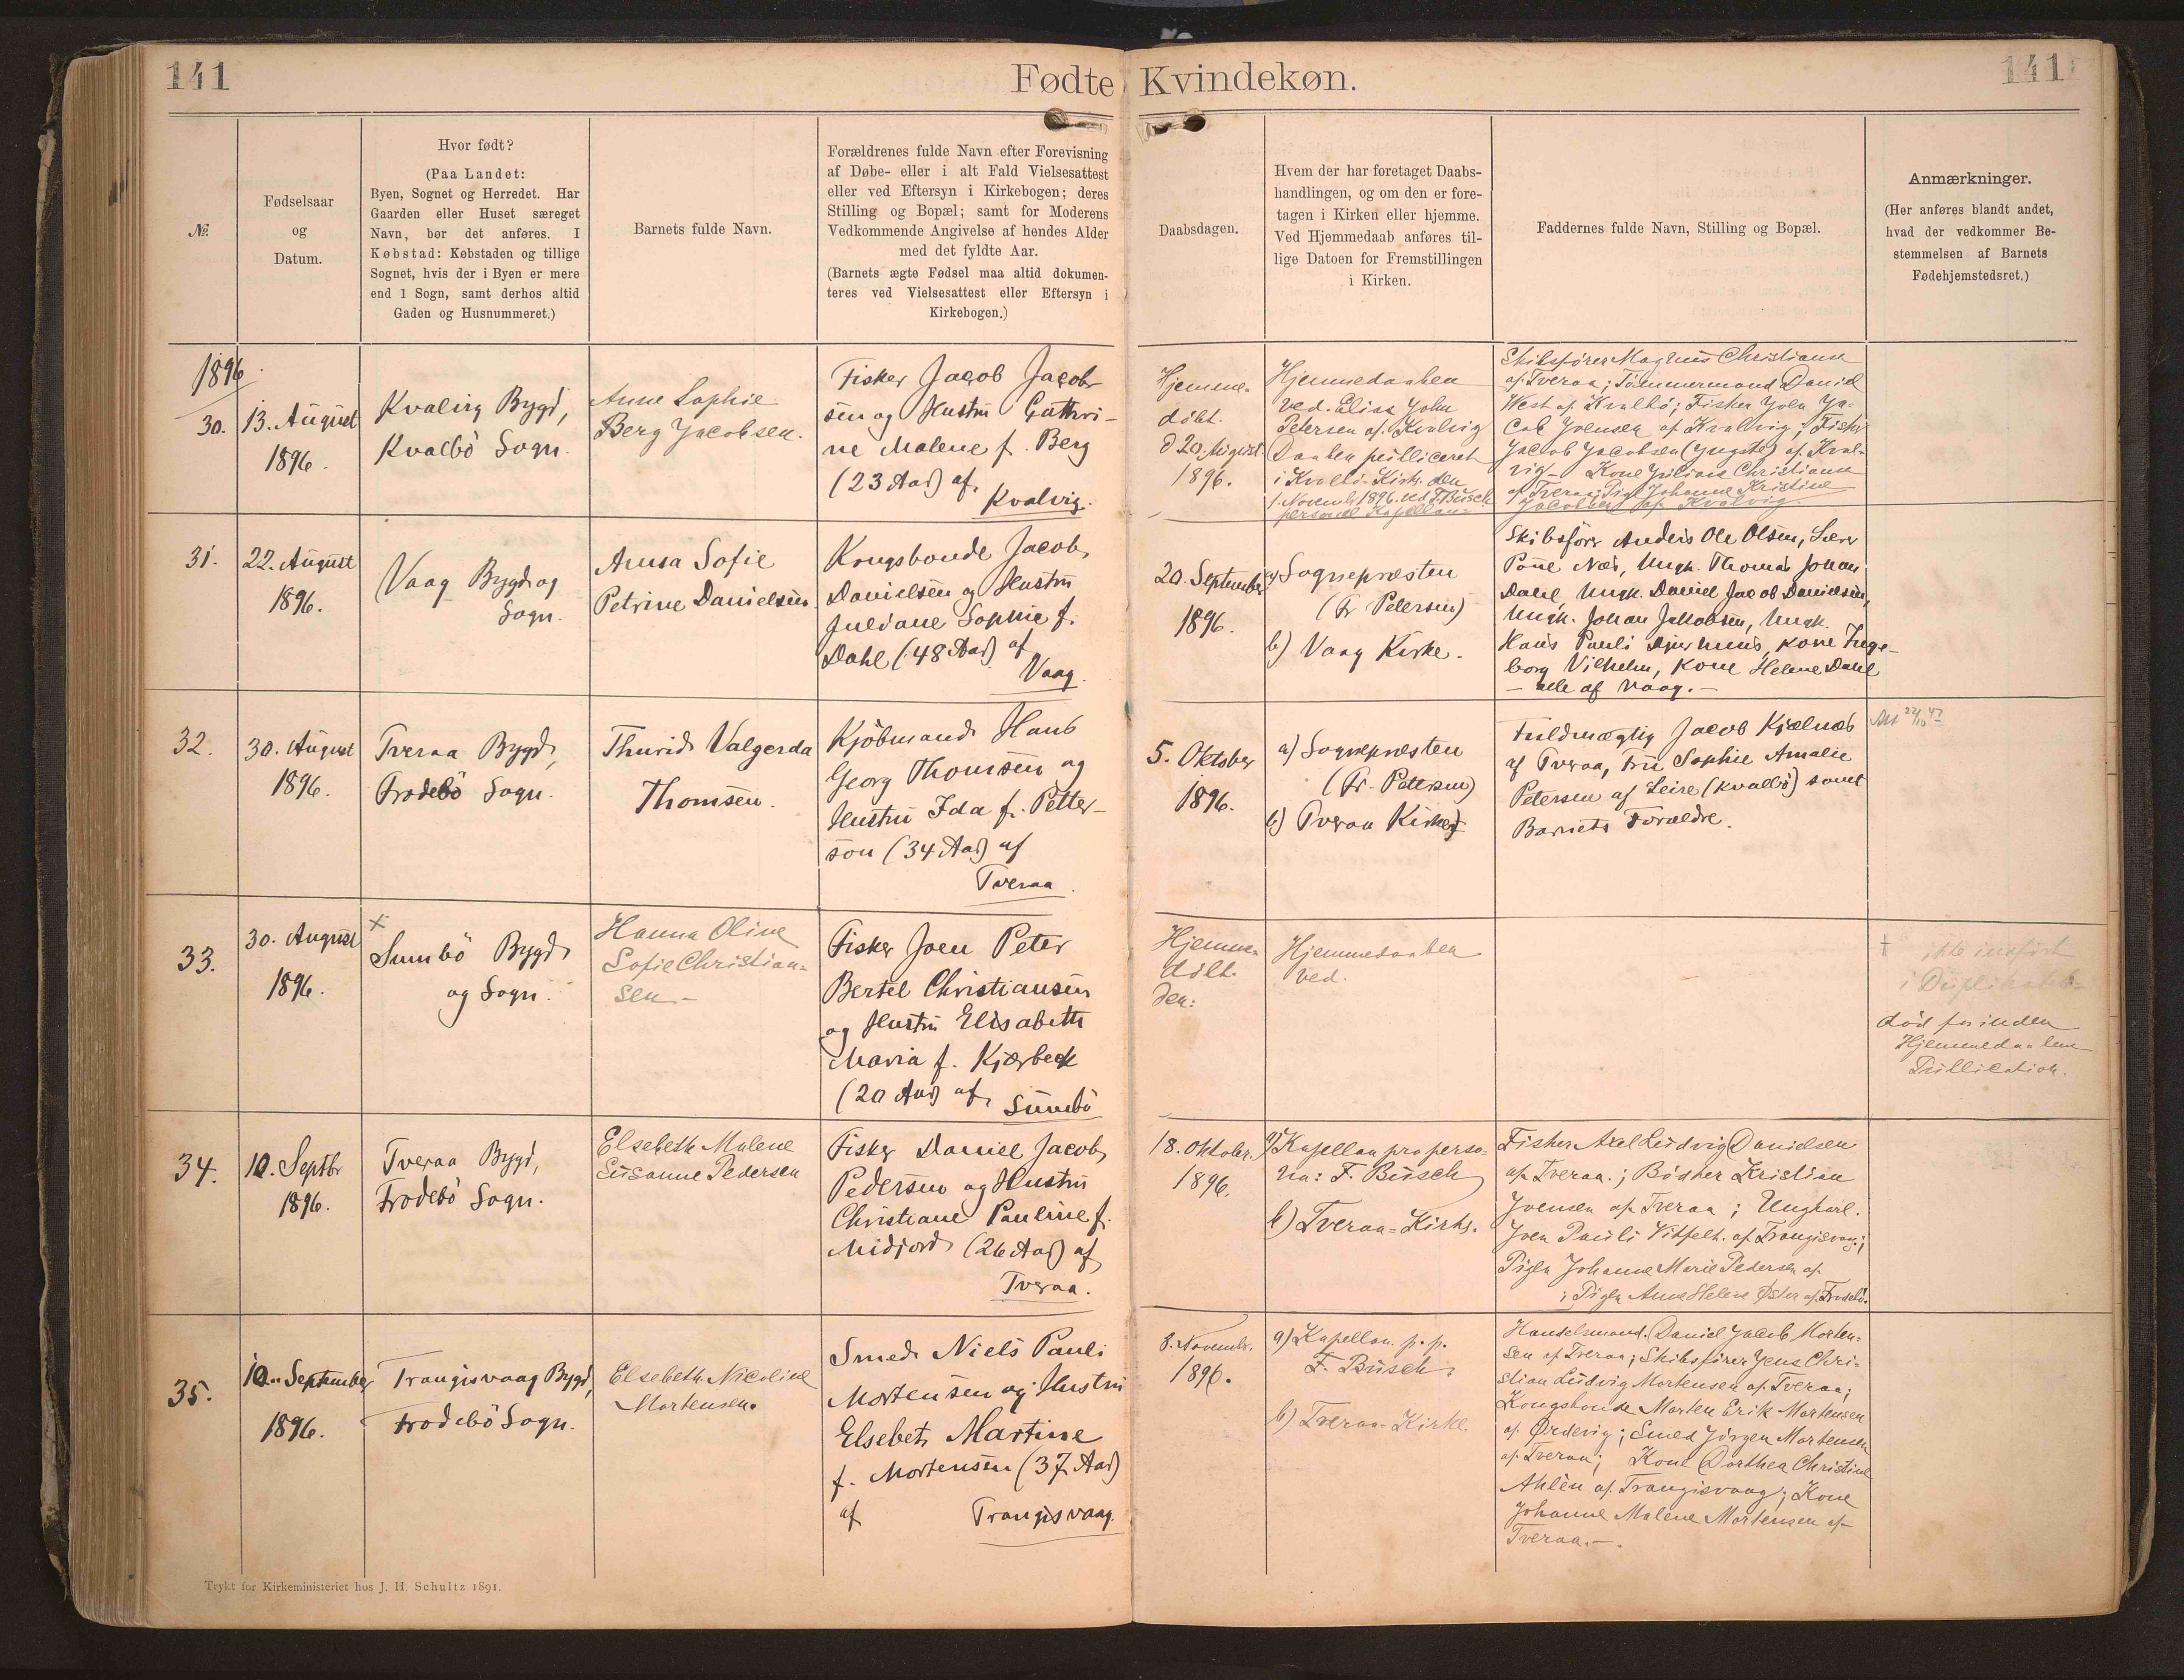 141
Fødte
Kvindekøn.
141
№
Fødselsaar
og
Datum.
Hvor født?
(Paa Landet:
Byen, Sognet og Herredet. Har
Gaarden eller Huset særeget
Navn, bør det anføres. I
Købstad: Købstaden og tillige
Sognet, hvis der i Byen er mere
end 1 Sogn, samt derhos altid
Gaden og Husnummeret.)
Barnets fulde Navn.
Forældrenes fulde Navn efter Forevisning
af Døbe- eller i alt Fald Vielsesattest
eller ved Eftersyn i Kirkebogen; deres
Stilling og Bopæl; samt for Moderens
Vedkommende Angivelse af hendes Alder
med det fyldte Aar.
(Barnets ægte Fødsel maa altid dokumen-
teres ved Vielsesattest eller Eftersyn i
Kirkebogen.)
Daabsdagen.
Hvem der har foretaget Daabs-
handlingen, og om den er fore-
tagen i Kirken eller hjemme.
Ved Hjemmedaab anføres til-
lige Datoen for Fremstillingen
i Kirken.
Faddernes fulde Navn, Stilling og Bopæl.
Anmærkninger.
(Her anføres blandt andet,
hvad der vedkommer Be-
stemmelsen af Barnets
Fødehjemstedsret.)
1896
30.
13. August
1896.
Kvalvig Bygd,
Kvalbö Sogn.
Anne Sophie
Berg Jacobsen.
Fisker Jacob Jacob-
sen og Hustru Cathri-
ne Malene f. Berg
(23 Aar) af
Kvalvig.
Hjemme-
döbt.
d 20 August
1896.
Hjemmedaaben
ved. Elias John
Petersen af. Kvalvig
Daaben publiceret
i Kvalbö-Kirke den
1. Novembr 1896. ved F. Büsch
personel Kapellan
Skibsfører Magnus Christiansen
af. Tveraa; Tömmermand Daniel
West af. Kvalbö; Fisker Joen Ja-
cob Joensen af Kvalvig; Fisker
Jacob Jacobsen (yngste) af. Kval-
vig- Kone Juliane Christiansen
af Tveraa; Pige Johanne Kristine
Jacobsen af. Kvalvig.
31.
22. August
1896.
Vaag Bygd og
Sogn.
Anna Sofie
Petrine Danielsen
Kongsbonde Jacob
Danielsen og Hustru
Juliane Sophie f.
Dahl (48 Aar) af
Vaag.
20. September
1896.
a) Sognepræsten
(Fr Petersen)
b) Vaag Kirke.
Skibsförer Anders Ole Olsen, Lærer
Poul Næs, Ungk. Thomas Johan
Dahl, Ungk. Daniel Jacob Danielsen,
Ungk. Johan Jakobsen, Ungk.
Hans Pauli Djurhuus, Kone Inge-
borg Vilhelm, Kone Helene Dahl
- alle af Vaag. -
32.
30. August
1896.
Tveraa Bygd,
Frodebö Sogn.
Thurid Valgerda
Thomsen.
Kjöbmand Hans
Georg Thomsen og
Hustru Ida f. Petter-
son (34 Aar) af
Tveraa.
5. Oktober
1896.
a) Sognepræsten
(Fr. Petersen)
b) Tveraa Kirke
Fuldmægtig Jacob Kjælnæs
af Tveraa, Fru Sophie Amalie
Petersen af Leire (Kvalbö) samt
Barnets Forældre.
33.
30. August
1896.
+
Sumbö Bygd
og Sogn.
Hanna Oline
Sofie Christian-
sen -
Fisker Joen Peter
Bertel Christiansen
og Hustru Elisabeth
Maria f. Kjærbech
(20 Aar) af
Sumbö
Hjemme-
döbt.
den:
Hjemmedaaben
ved.
+ ikke indført
i Duplikatet-
död forinden
Hjemmedaabens
Publication.
34.
10. Septbr
1896.
Tveraa Bygd,
Frodebö Sogn.
Elsebeth Malene
Susanne Pedersen
Fisker Daniel Jacob
Pedersen og Hustru
Christiane Pauline f.
Midjord (26 Aar) af
Tveraa.
18. Oktober.
1896.
a) Kapellan pro perso-
na: F. Büsch
b) Tveraa-Kirke.
Fisker Axel Ludvig Danielsen
af. Tveraa.; Bödker Kristian
Joensen af. Tveraa; Ungkarl.
Joen Pauli Vitfelt. af. Trangisvaag;
Pigen Johanne Marie Pedersen af.
; Pigen Anne Helene Öster af. Frodebö.
35.
10. September
1896.
Trangisvaag Bygd,
Frodebö Sogn.
Elsebeth Nicoline
Mortensen.
Smed Niels Pauli
Mortensen og Hustru
Elsebeth Martine
f. Mortensen (37 Aar)
af Trangisvaag.
8. Novembr.
1896.
a) Kapellan p. p.
F. Büsch.
b) Tveraa-Kirke.
Handelsmand. Daniel Jacob Morten-
sen af Tveraa; Skibsfører Jens Chri-
stian Ludvig Mortensen af. Tveraa;
Kongsbonde Morten Erik Mortensen
af. Ørdevig; Smed Jörgen Mortensen
af. Tveraa; Kone Dorthea Christine
Ahlén af. Trangisvaag; Kone
Johanne Malene Mortensen af-
Tveraa. -.
Trykt for Kirkeministeriet hos J. H. Schultz 1891.